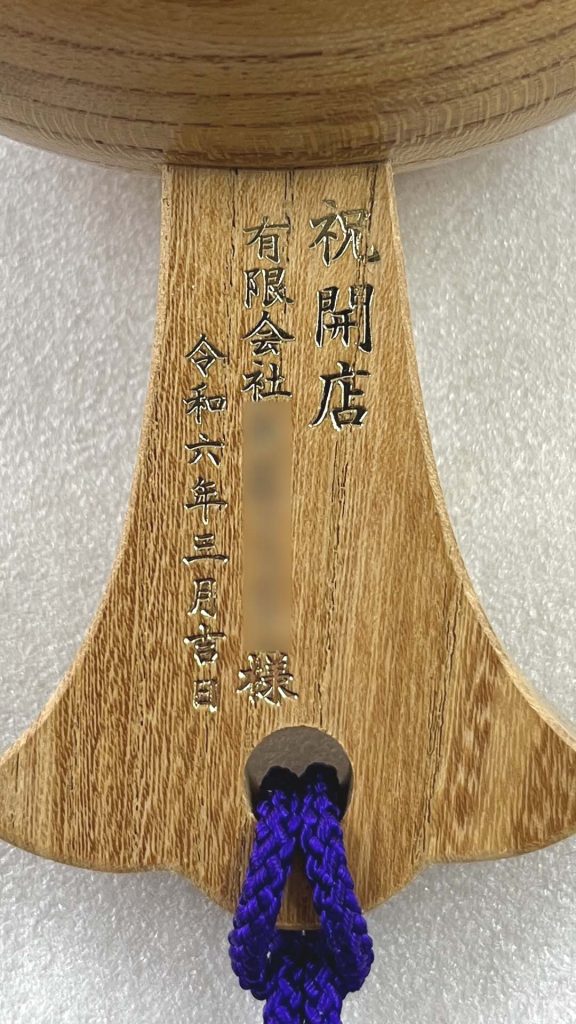 祝開店
有限会社
様
令和六年三月吉日